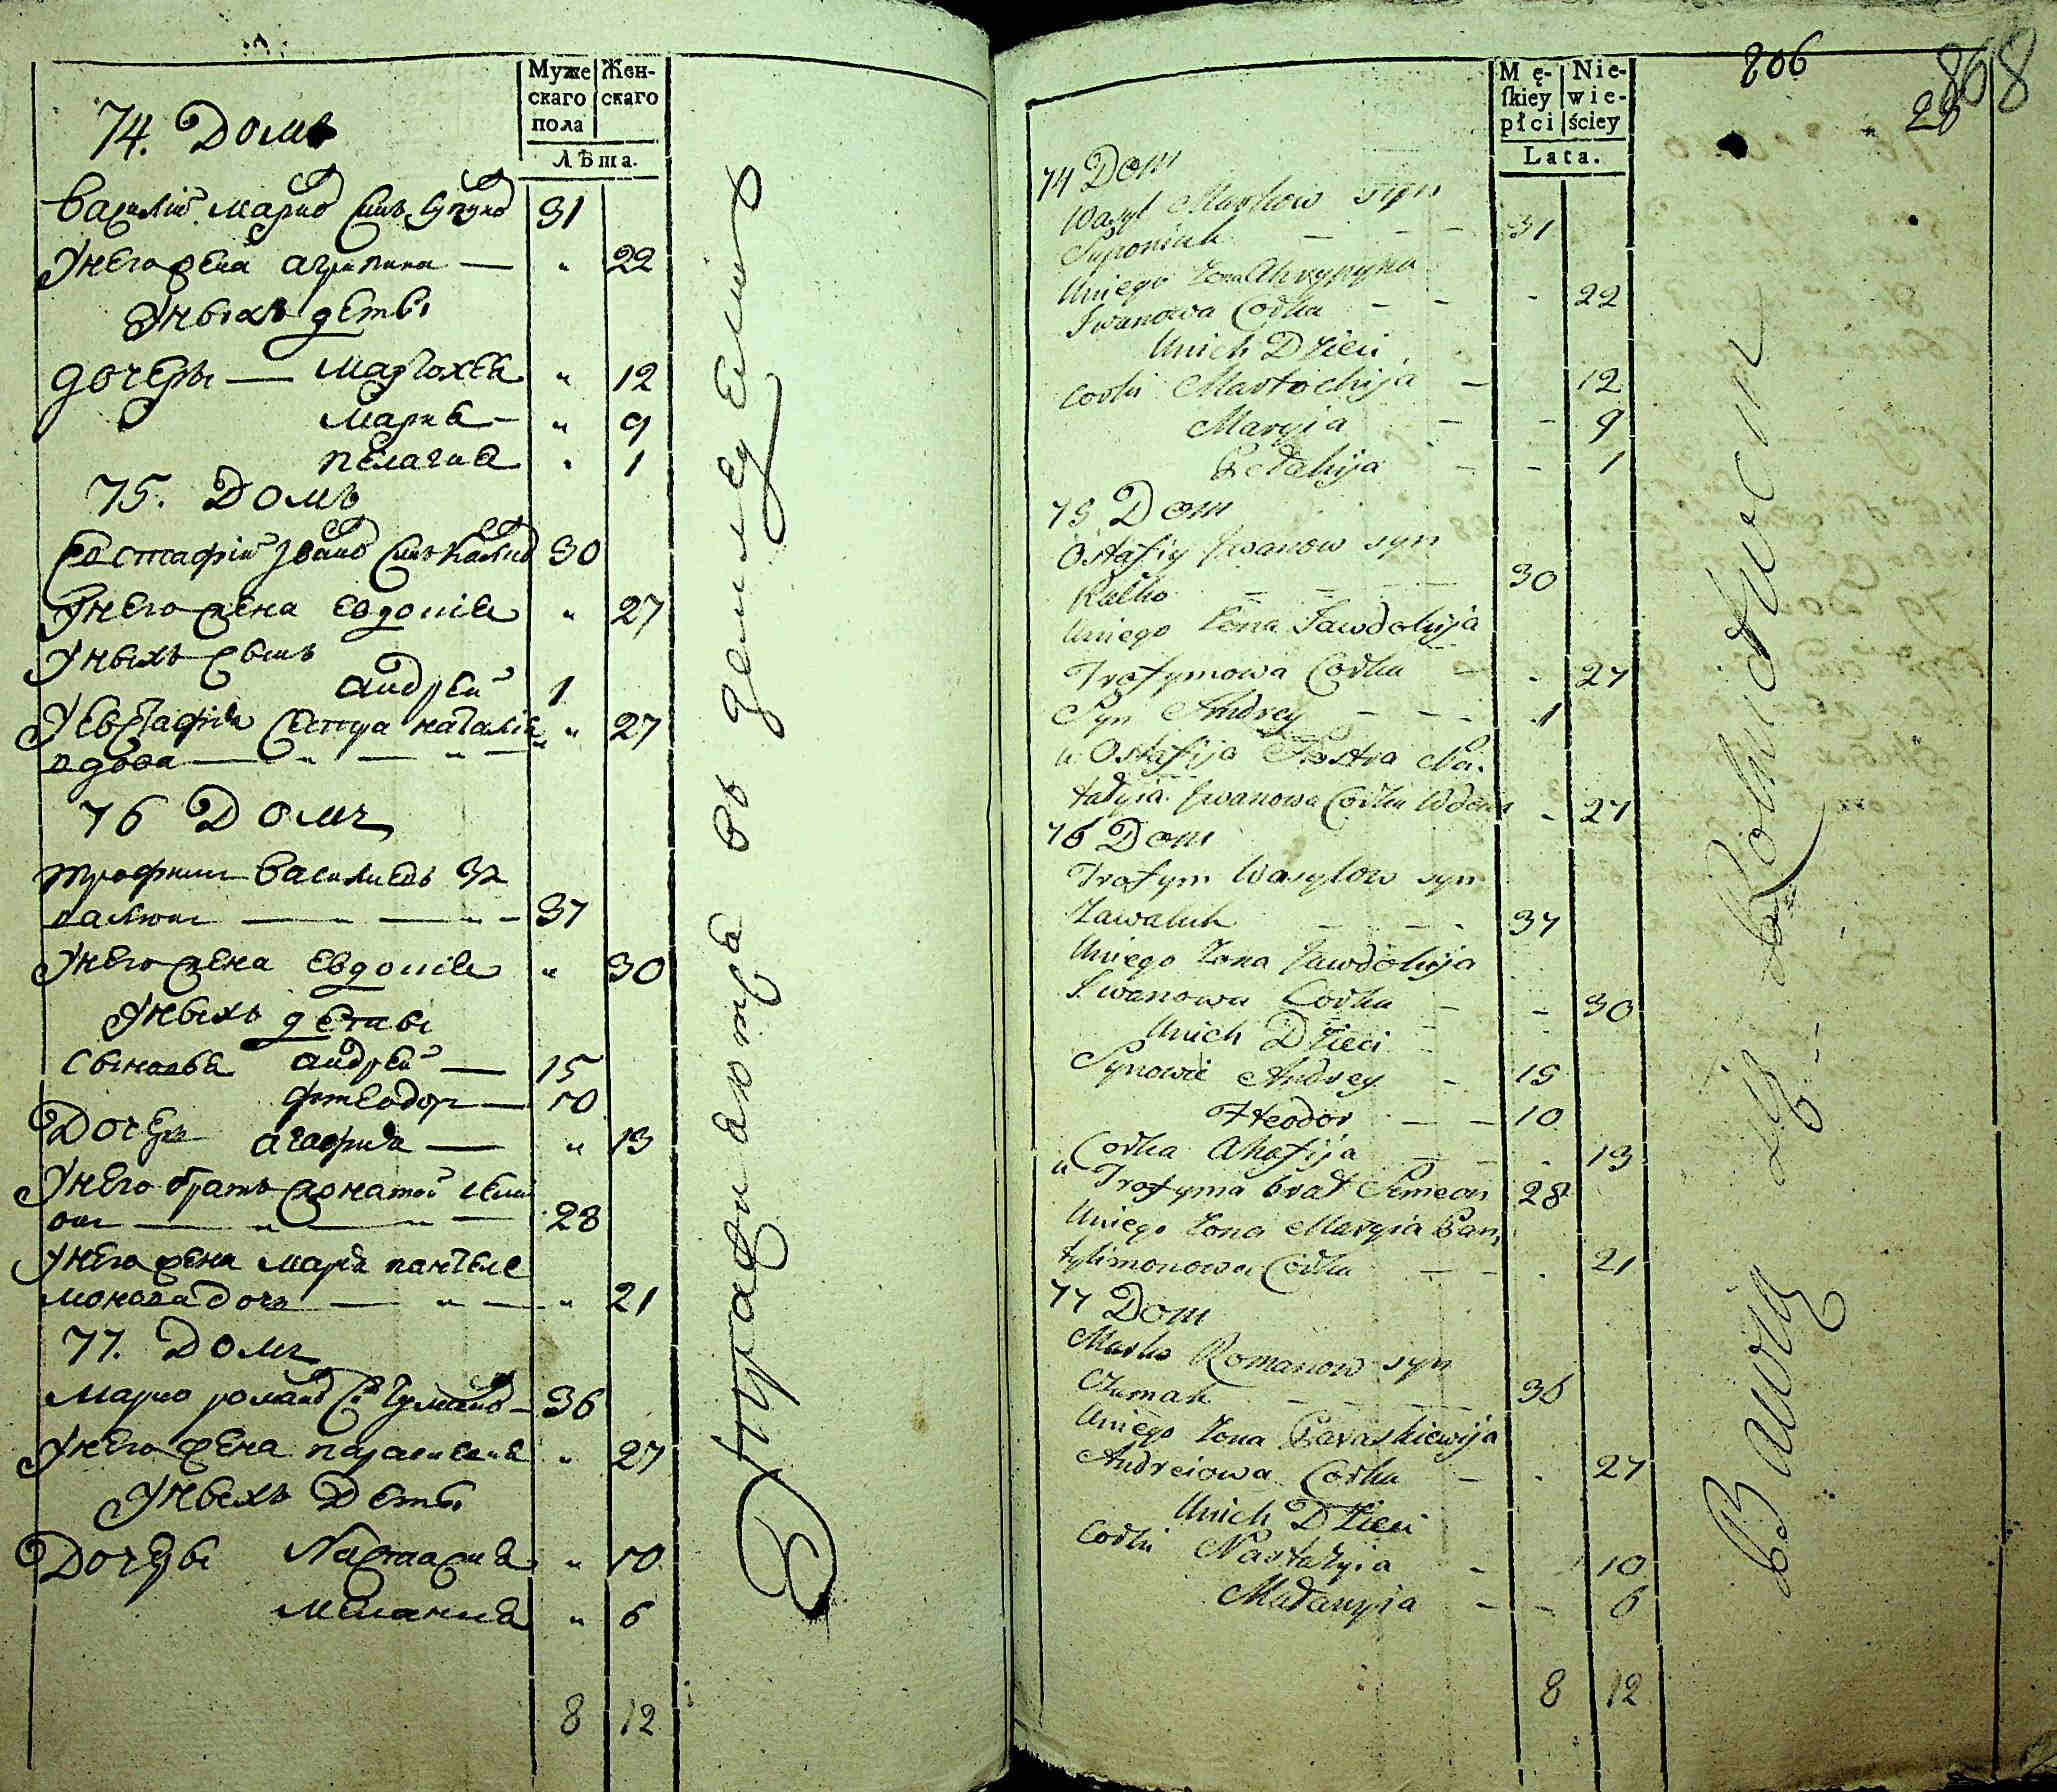 Муже
скаго
пола
Жен-
скаго
Лѣта.
74. Домъ
Василій Марко 31
У него жена агрипина — " 22
У ныхъ деты
дочеры — Мартохея " 12
Мария — " 9
пелагия " 1
75. Домъ
Евстафій Івано 30
У него жена Евдокия " 27
У ныхъ сынъ
андрей 1
У Евстафия сестра наталия " 27
вдова — " — "
76 Домъ
трофимъ Василиевъ За
валюкъ — " — " — 37
У него жена Евдокия " 30
У ныхъ деты
Сыновья андрей — 15
фтеодоръ — 10
Дочерь агафия — " 13
У него братъ жонатой семи
онъ — " — " — 28
У него жена Мария пантеле
монова дочь — " — " 21
77. Домъ
Марко романо 36
У него жена параскевия " 27
У ныхъ Деты
Дочеры Настасия " 10
Мелания " 6
8 12
въ
M ę-
ſkiey
płci
Nie-
wie-
ściey
Lata.
806
868
28
74 Dom
Wasyl Markow syn
Suponiuk — — — 31
Uniego żona Ahrypyna
Iwanowa Corka — — - 22
Unich Dzieci
Corki Martochija — 12
Maryia — - 9
Pełahija — - 1
75 Dom
Ostafiy Iwanow syn
Kalko — — — 30
Uniego żona Jawdokija
Trofymowa Corka — - 27
Syn Andrey — — - 1
u Ostafija Siostra Na-
tałyia Iwanowa Corka Wdowa - 27
76 Dom
Trofym Wasylow syn
Zawaluk — — — 37
Uniego żona Jawdokija
Iwanowa Corka — - 30
Unich Dzieci
Synowie Andrey — 15
Fteodor — — 10
Corka Ahafija — — - 13
u Trofyma brat Simeon 28
Uniego żona Maryia Pan,
tylimonowa Corka — — - 21
77 Dom
Marko Romanow syn
Czumak — — — 36
Uniego żona Paraskiewija
Andreiowa Corka — - 27
Unich Dzieci
Corki Nastazyia - 10
Mełanyia — - 6
8 12